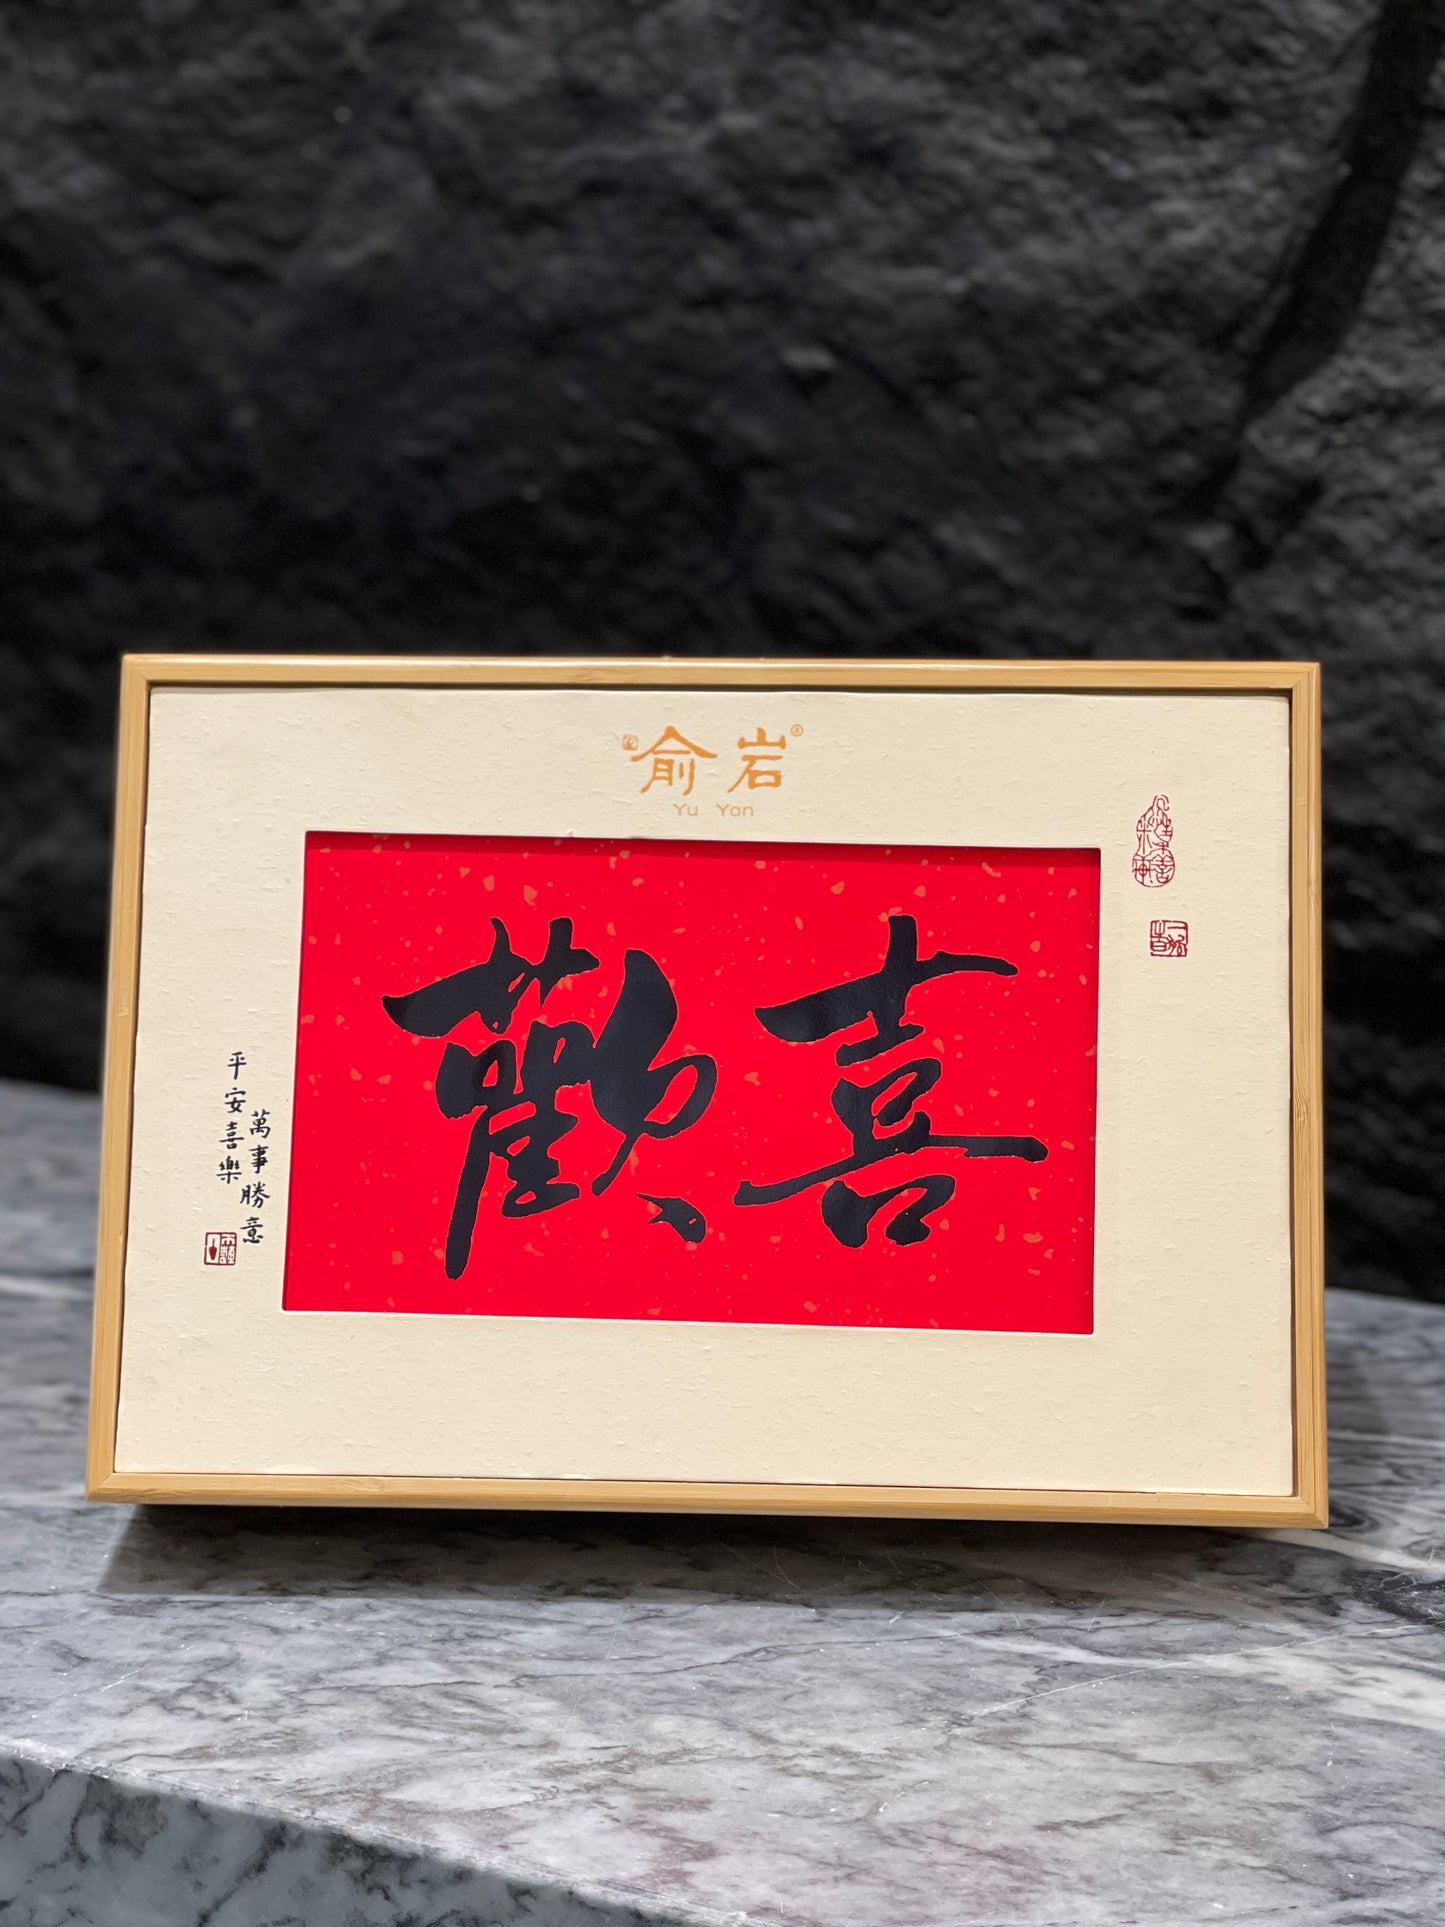 俞岩
Yu Yan
喜歡
萬事勝意
平安喜樂